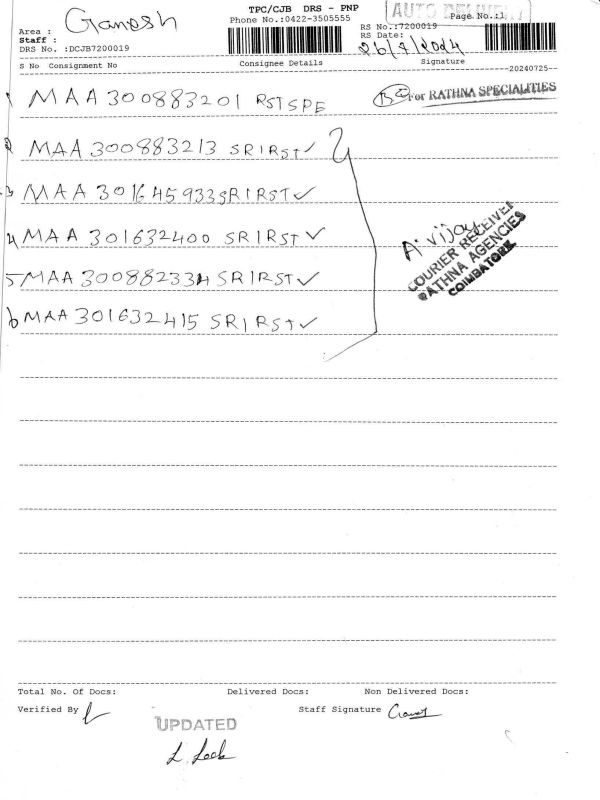 TPC/CJB DRS - PNP
AUTO DELIVERY
Ganesh
Phone No.:0422-3505555
Page No.:1
Area :
RS No.:7200019
Staff :
RS Date:
26/7/2024
DRS No. :DCJB7200019
S No Consignment No
Consignee Details
Signature
--20240725--
1 MAA 300883201 RSTSPE
For RATHNA SPECIALITIES
2 MAA 300883213 SRIRST ✓
3 MAA 301645933 SRIRST ✓
4 MAA 301632400 SRIRST ✓
5 MAA 300882334 SRIRST ✓
6 MAA 301632415 SRIRST ✓
A. Vijay
COURIER RECEIVED
RATHNA AGENCIES
COIMBATORE
Total No. Of Docs:
Delivered Docs:
Non Delivered Docs:
Verified By
Staff Signature
UPDATED